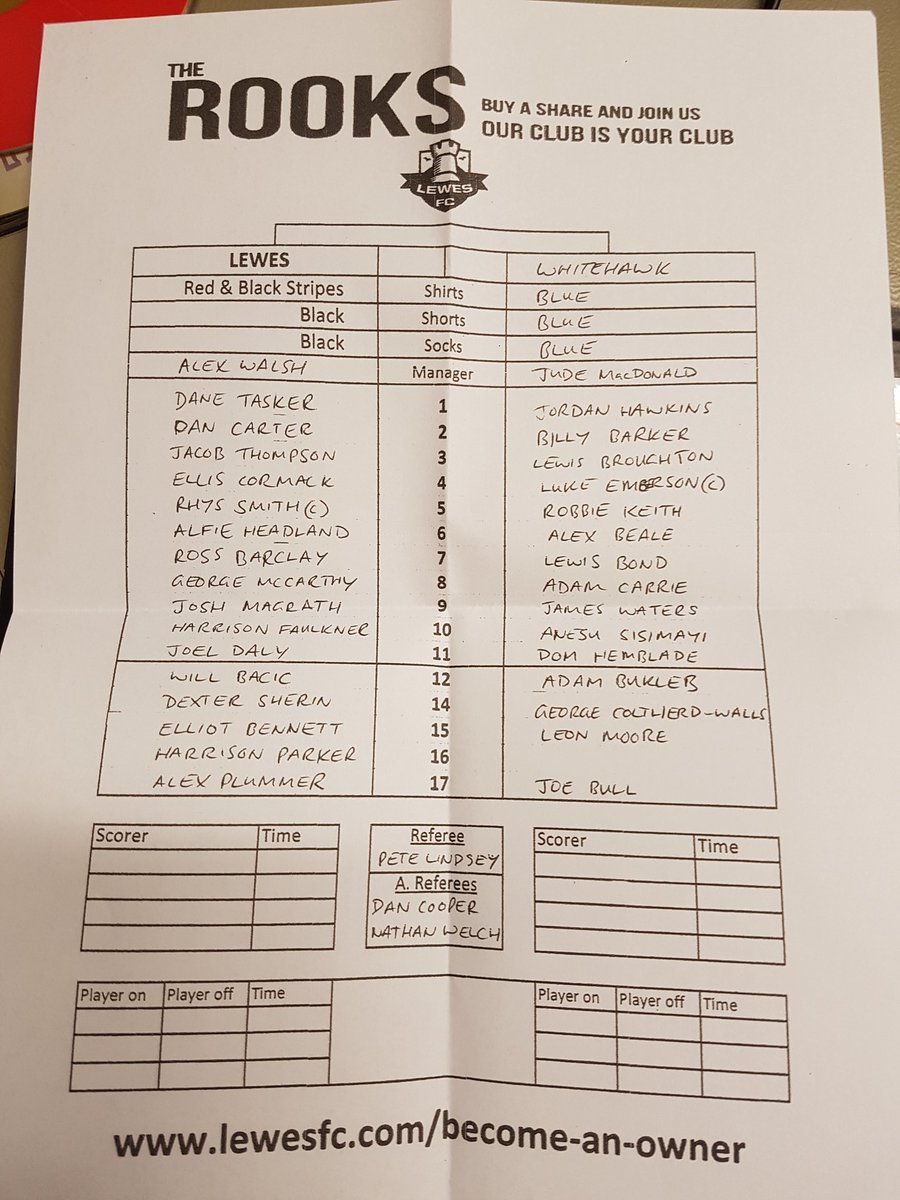 THE
ROOKS
BUY A SHARE AND JOIN US
OUR CLUB IS YOUR CLUB
LEWES
FC
LEWES WHITEHAWK
Red & Black Stripes Shirts BLUE
Black Shorts BLUE
Black Socks BLUE
ALEX WALSH Manager JUDE MACDONALD
DANE TASKER 1 JORDAN HAWKINS
DAN CARTER 2 BILLY BARKER
JACOB THOMPSON 3 LEWIS BROUGHTON
ELLIS CORMACK 4 LUKE EMERSON (C)
RHYS SMITH (C) 5 ROBBIE KEITH
ALFIE HEADLAND 6 ALEX BEALE
ROSS BARCLAY 7 LEWIS BOND
GEORGE MCCARTHY 8 ADAM CARRIE
JOSH MAGRATH 9 JAMES WATERS
HARRISON FAULKNER 10 ANESU SISIMAYI
JOEL DALY 11 DOM HEMBLADE
WILL BACIC 12 ADAM BUKLEB
DEXTER SHERIN 14 GEORGE COLTHERD-WALLS
ELLIOT BENNETT 15 LEON MOORE
HARRISON PARKER 16
ALEX PLUMMER 17 JOE BULL
Scorer Time Referee Scorer Time
PETE LINDSEY
A. Referees
DAN COOPER
NATHAN WELCH
Player on Player off Time Player on Player off Time
www.lewesfc.com/become-an-owner